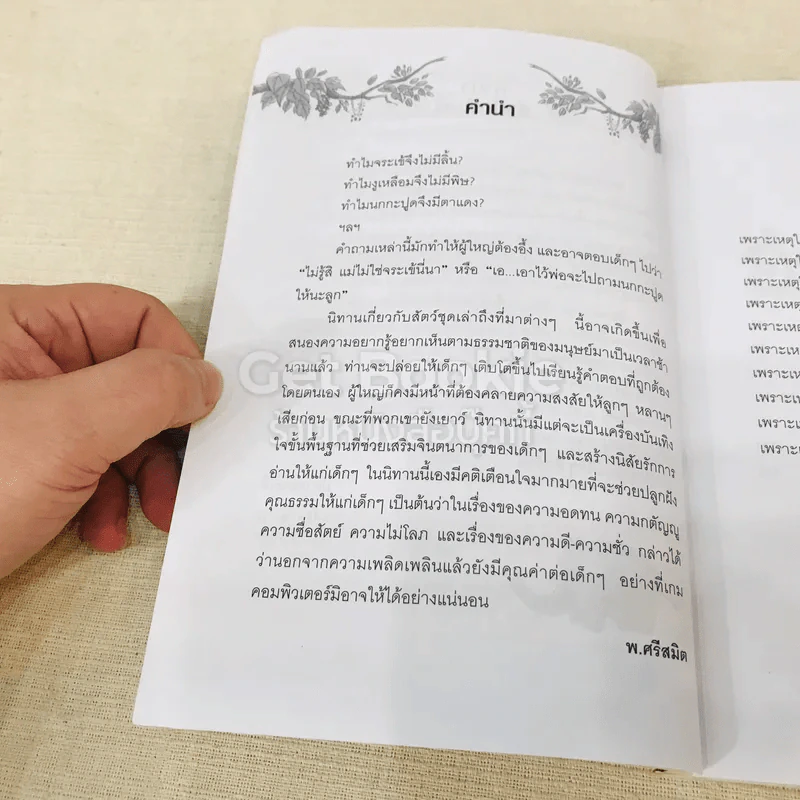 คำนำ
ทำไมจระเข้จึงไม่มีลิ้น?
ทำไมงูเหลือมจึงไม่มีพิษ?
ทำไมนกกะปูดจึงมีตาแดง?
ฯลฯ
คำถามเหล่านี้มักทำให้ผู้ใหญ่ต้องอึ้ง และอาจตอบเด็กๆ ไปว่า
“ไม่รู้สิ แม่ไม่ใช่จระเข้นี่นา” หรือ “เอ...เอาไว้พ่อจะไปถามนกกะปูด
ให้นะลูก”
นิทานเกี่ยวกับสัตว์ชุดเล่าถึงที่มาต่างๆ นี้อาจเกิดขึ้นเพื่อ
สนองความอยากรู้อยากเห็นตามธรรมชาติของมนุษย์มาเป็นเวลาช้า
นานแล้ว ท่านจะปล่อยให้เด็กๆ เติบโตขึ้นไปเรียนรู้คำตอบที่ถูกต้อง
โดยตนเอง ผู้ใหญ่ก็คงมีหน้าที่ต้องคลายความสงสัยให้ลูกๆ หลานๆ
เสียก่อน ขณะที่พวกเขายังเยาว์ นิทานนั้นมีแต่จะเป็นเครื่องบันเทิง
ใจขั้นพื้นฐานที่ช่วยเสริมจินตนาการของเด็กๆ และสร้างนิสัยรักการ
อ่านให้แก่เด็กๆ ในนิทานนี้เองมีคติเตือนใจมากมายที่จะช่วยปลูกฝัง
คุณธรรมให้แก่เด็กๆ เป็นต้นว่าในเรื่องของความอดทน ความกตัญญู
ความซื่อสัตย์ ความไม่โลภ และเรื่องของความดี-ความชั่ว กล่าวได้
ว่านอกจากความเพลิดเพลินแล้วยังมีคุณค่าต่อเด็กๆ อย่างที่เกม
คอมพิวเตอร์มิอาจให้ได้อย่างแน่นอน
พ.ศรีสมิต
เพราะเหตุ
เพราะเหตุ
เพราะเหตุ
เพราะเหตุ
เพราะเหตุ
เพราะเหตุ
เพราะเห
เพราะเห
เพราะเห
เพราะเห
Get Bookie